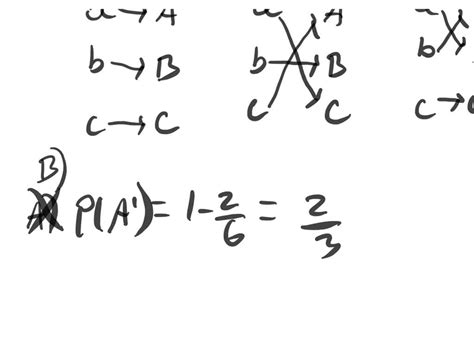 a → A a A
b → B b → B b
c → C c C c →
B)
P(A') = 1 - 2/6 = 2/3